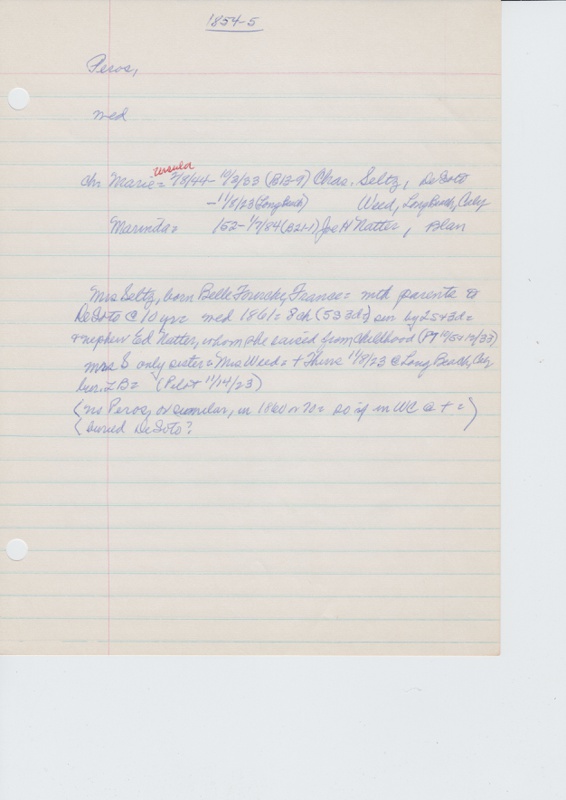 1854-5
Peros,
med
Ursula
ch. Marie = 7/8/44 - 10/3/33 (B13-9) Chas. Seltz, DeSoto
- 11/8/23 (Long Beach) Weed, Long Beach, Caly
Marinda = 152 - 1/7/84 (B21-1) Joe H Natter, Blair
Mrs Seltz, born Belle France = mth parents to
DeSoto @ 10 yrs = med 1861 = 8ch (5S3ds) sur by 2S+3d =
+ nephew Ed Natter, whom she raised from childhood
Mrs S only sister = Mrs Weed = + There 11/8/23 @ Long Beach, Caly
bur. LB = (Pilot 11/14/23)
(no Peros, or similar, in 1860 or 70 = so if in WC @ + =
buried DeSoto?)